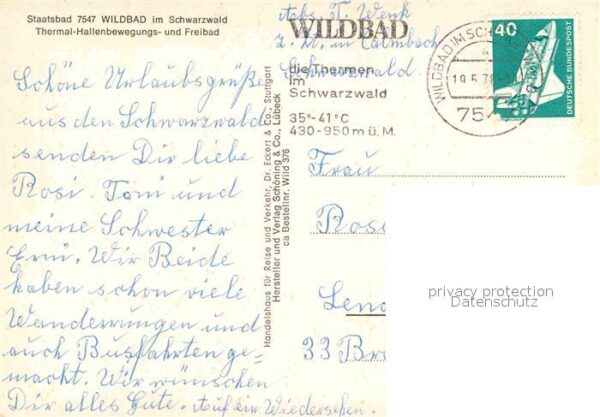 Staatsbad 7547 WILDBAD im Schwarzwald
Thermal-Hallenbewegungs- und Freibad
Schöne Urlaubsgrüße
aus den Schwarzwald
senden Dir liebe
Rosi. Toni und
meine Schwester
Erni. Wir Beide
haben schon viele
Wanderrungen und
auch Busfahrten ge-
macht. Wir wünschen
Dir alles Gute. Auf ein Wiedersehen.
Handelshaus für Reise und Verkehr, Dr. Eckert & Co., Stuttgart
Hersteller und Verlag Schöning & Co., Lübeck
ca Bestellnr. Wild 376
Abs. T. Wenk
z. Zt. in Calmbach
Schwarzwald
WILDBAD
die Thermen
im
Schwarzwald
35°-41°C
430-950 m ü. M.
WILDBAD IM SCH
19.5.78
754
40
DEUTSCHE BUNDESPOST
Frau
Ros
Len
33 Br
privacy protection
Datenschutz